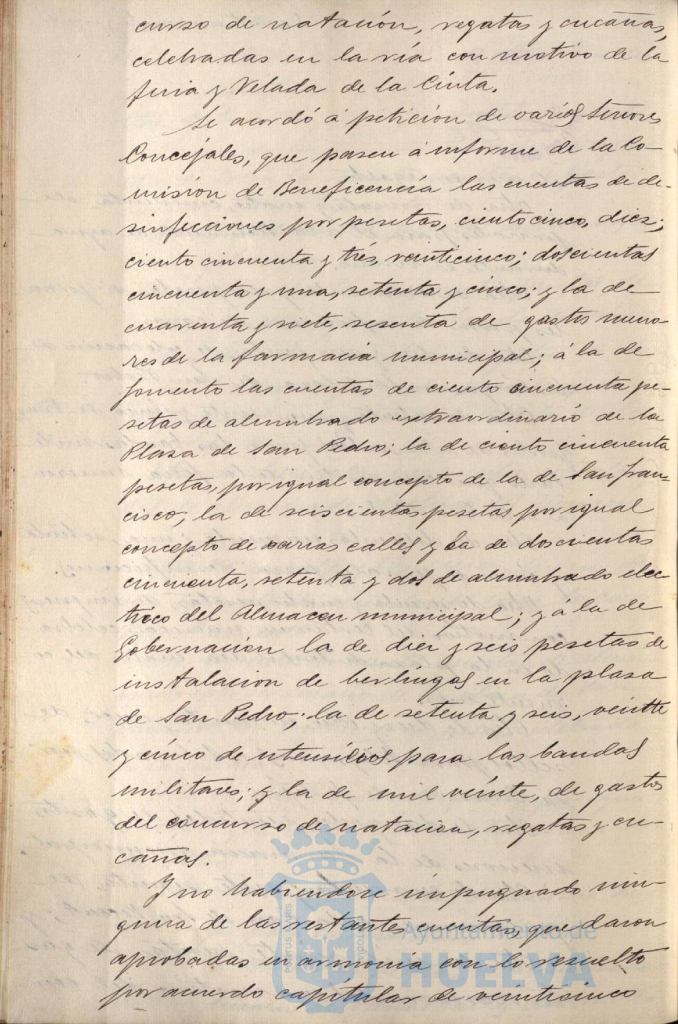 curso de natación, regatas y cucañas,
celebradas en la ría con motivo de la
feria y Velada de la Cinta.
Se acordó á petición de varios Señores
Concejales, que pasen á informe de la Co-
misión de Beneficencia las cuentas de de-
sinfecciones por pesetas, ciento cinco, diez;
ciento cincuenta y trés, veinticinco; doscientas
cincuenta y una, setenta y cinco; y la de
cuarenta y siete, sesenta de gastos meno-
res de la farmacia municipal; á la de
fomento las cuentas de ciento cincuenta pe-
setas de alumbrado extraordinario de la
Plasa de San Pedro; la de ciento cincuenta
pesetas, por igual concepto de la de San Fran-
cisco, la de seiscientas pesetas por igual
concepto de varias calles y la de doscientas
cincuenta, setenta y dos de alumbrado elec-
trico del Almacen municipal; y á la de
Gobernación la de diez y seis pesetas de
instalación de berlingas en la plasa
de San Pedro; la de setenta y seis, veinte
y cinco de utensilios para las bandas
militares; y la de mil veinte, de gastos
del concurso de natación, regatas y cu-
cañas.
Y no habiendose impugnado nin-
guna de las restantes cuentas, quedaron
aprobadas en armonia con lo resuelto
por acuerdo capitular de veinticinco
Ayuntamiento de
HUELVA